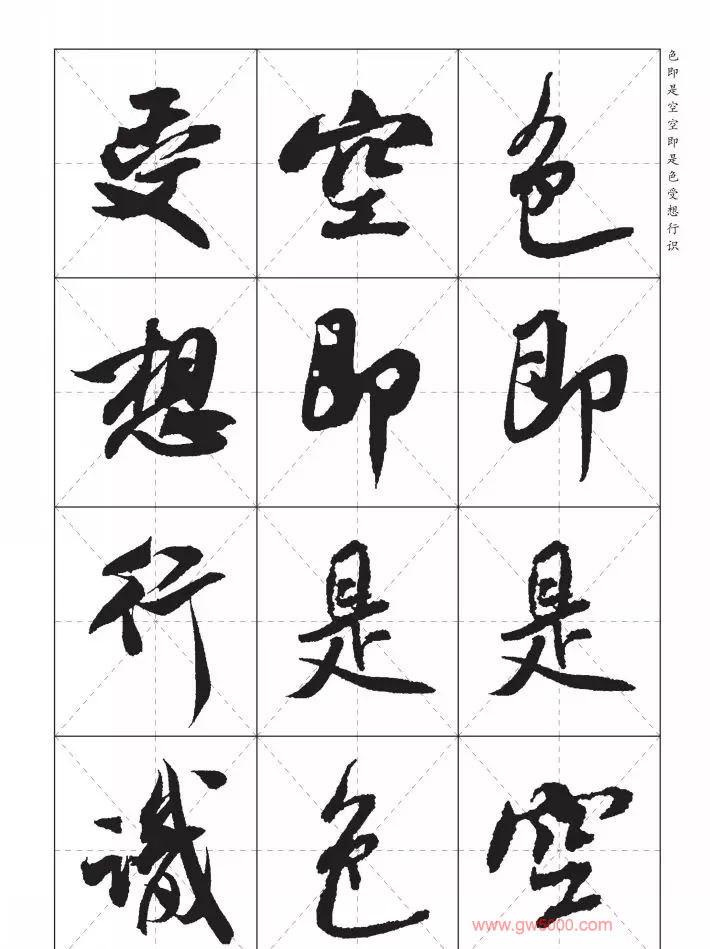 色即是空
空即是色
受想行識
色即是空空即是色受想行识
www.gw5000.com